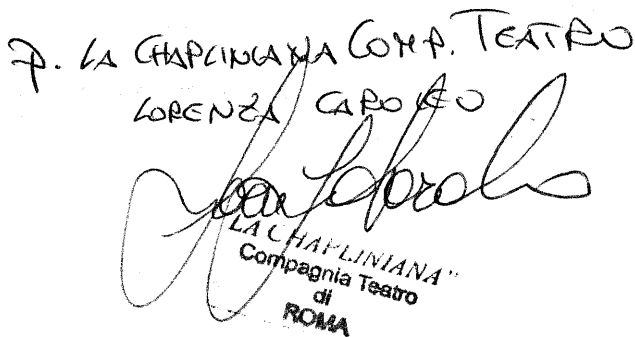 P. LA CHAPLINIANA COMP. TEATRO
LORENZA CAROLEO
LA CHAPLINIANA"
Compagnia Teatro
di
ROMA